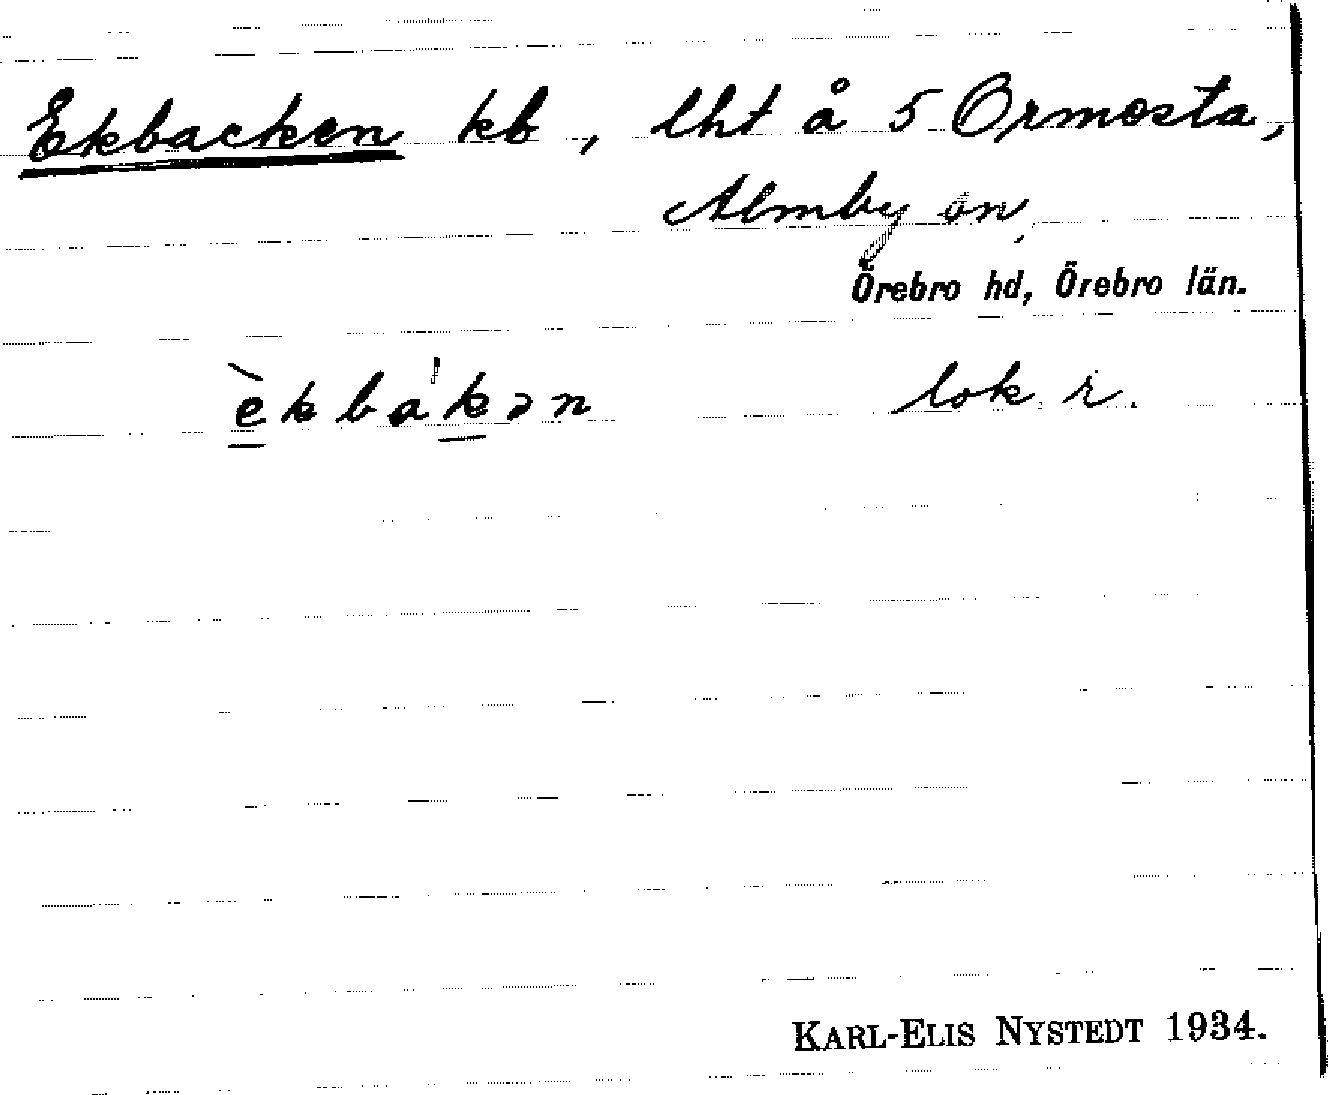 Ekbacken kb, lht å 5 Ormesta,
Almby sn,
Örebro hd, Örebro län.
èkbàkən lok. r.
KARL-ELIS NYSTEDT 1934.